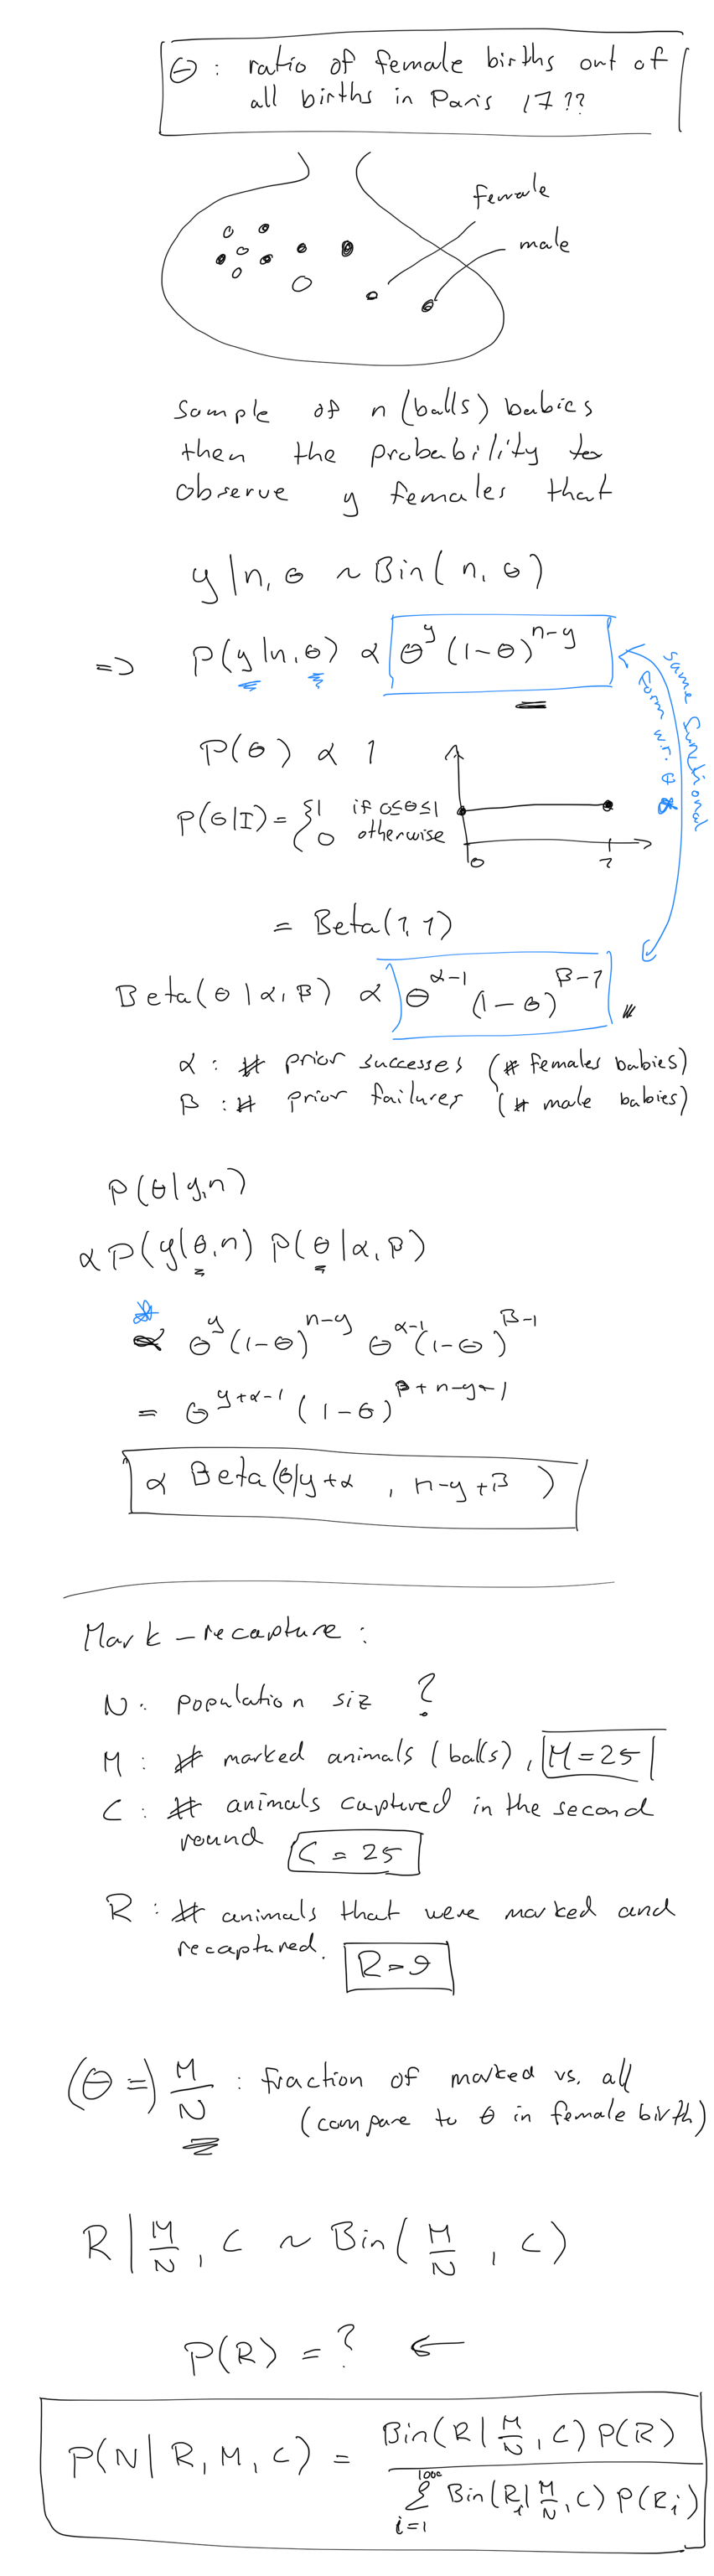 θ : ratio of female births out of
all births in Paris 17??
female
male
Sample of n (balls) babies
then the probability to
observe y females that
y | n, θ ~ Bin( n, θ )
=> P(y|n,θ) ∝ θ^y (1-θ)^{n-y}
same functional
form w.r. θ
P(θ) ∝ 1
P(θ|I) = { 1 if 0≤θ≤1
0 otherwise
0 1
= Beta(1,1)
Beta(θ | α, β) ∝ θ^{α-1} (1-θ)^{β-1}
α : # prior successes (# females babies)
β : # prior failures (# male babies)
P(θ|y,n)
∝ P(y|θ,n) P(θ|α,β)
∝ θ^y (1-θ)^{n-y} θ^{α-1} (1-θ)^{β-1}
= θ^{y+α-1} (1-θ)^{β+n-y-1}
∝ Beta(θ|y+α , n-y+β )
Mark-recapture :
N : population siz ?
M : # marked animals (balls), M = 25
C : # animals captured in the second
round C = 25
R : # animals that were marked and
recaptured. R = 9
(θ =) M/N : fraction of marked vs. all
(compare to θ in female birth)
R | M/N , C ~ Bin( M/N , C )
P(R) = ? ←
P(N | R, M, C) = Bin(R | M/N , C) P(R) / Σ_{i=1}^{1000} Bin(R_i | M/N , C) P(R_i)